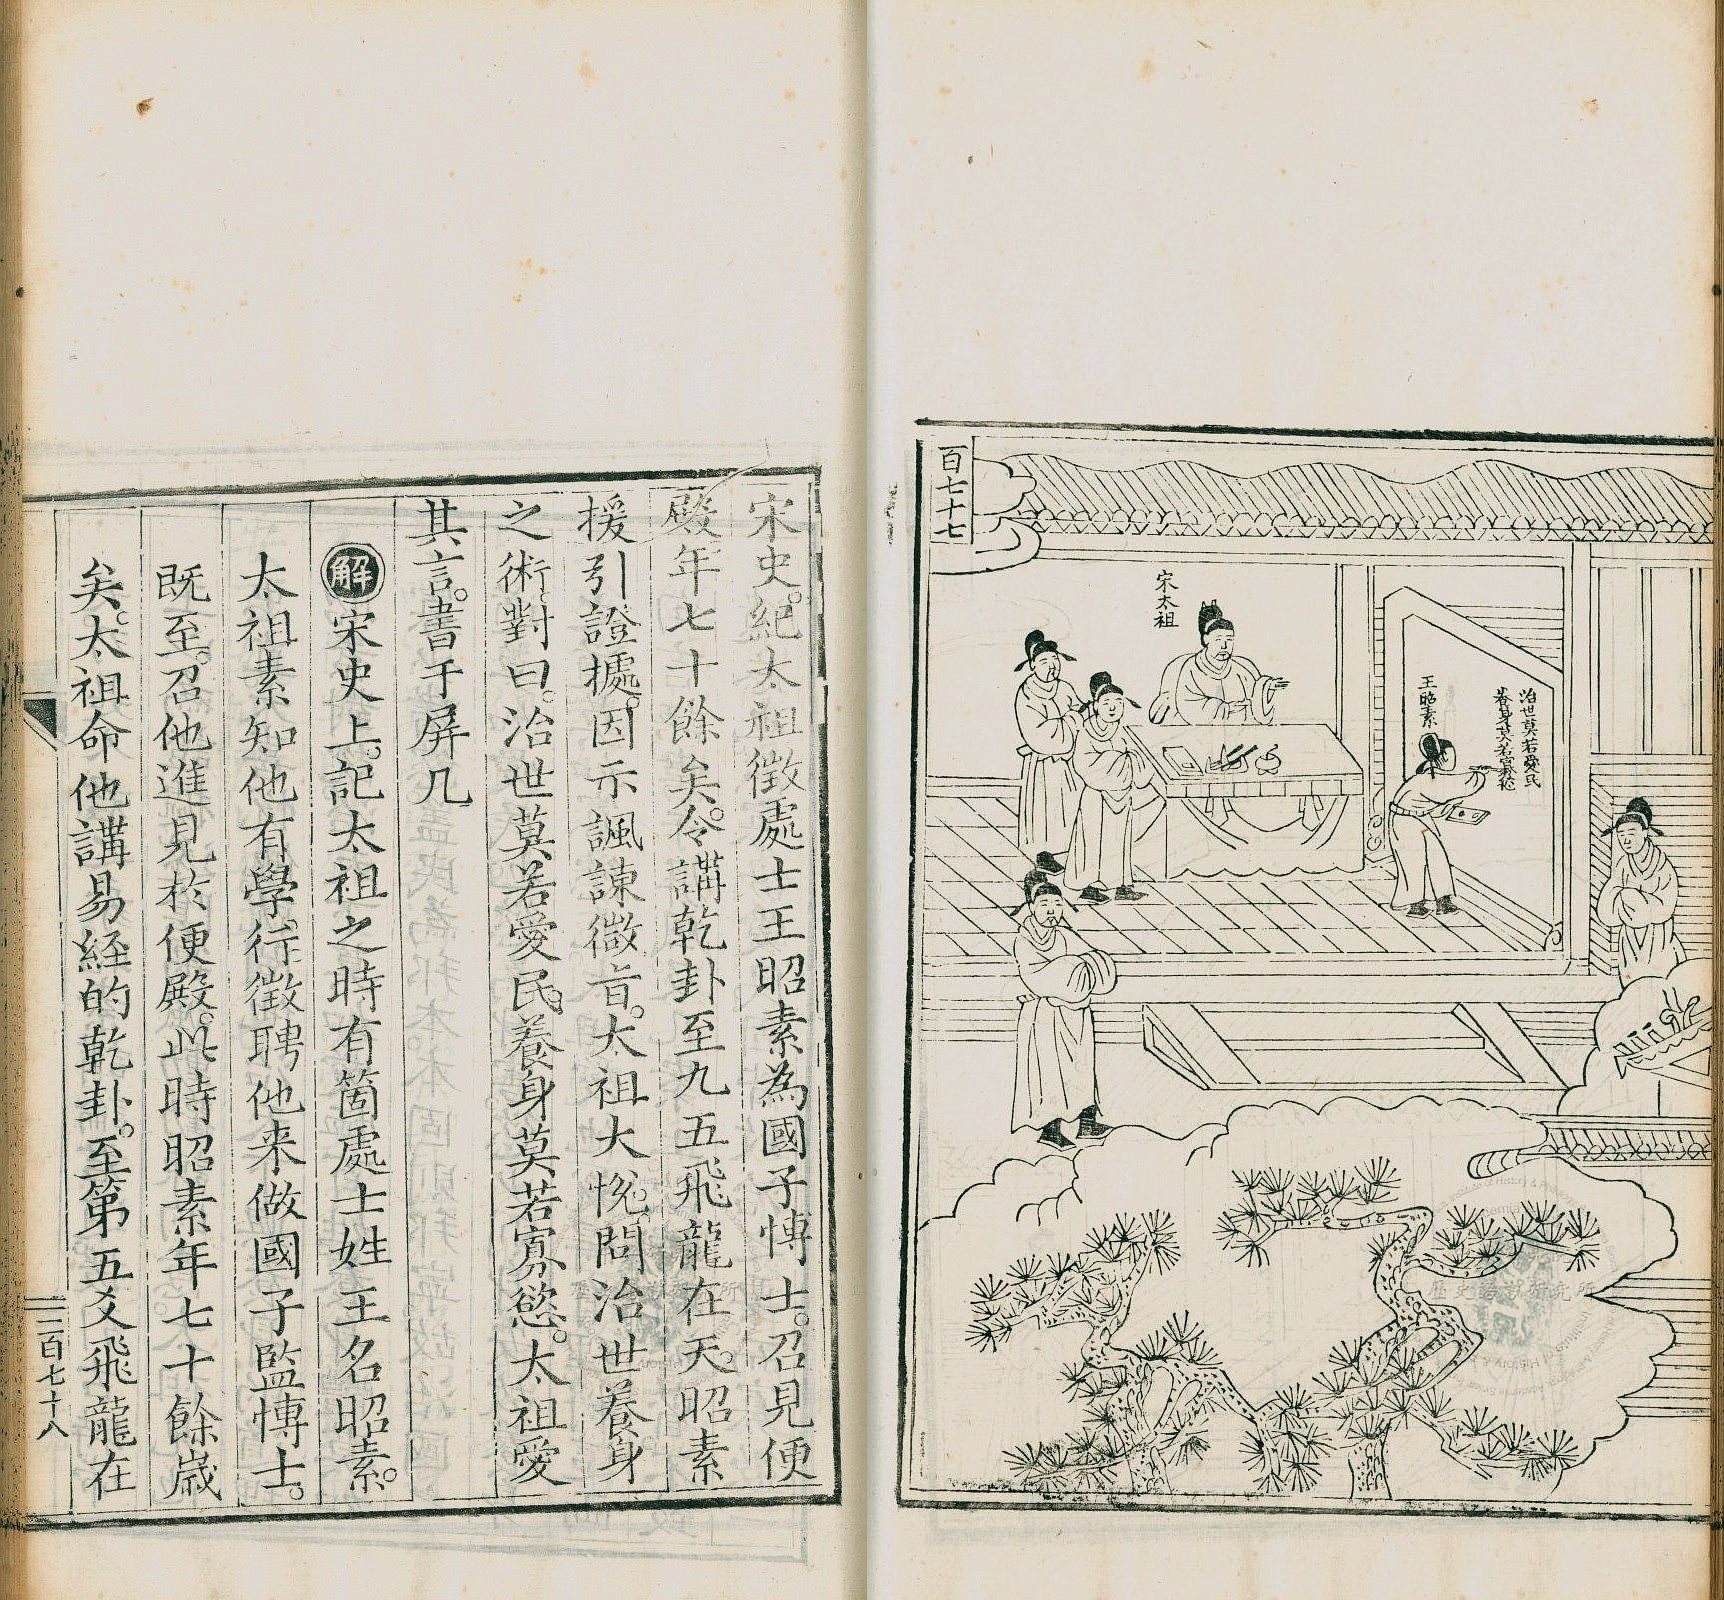 百七十七
宋太祖
治世莫若愛民
養身莫若寡慾
王昭素
宋史。紀太祖徵處士王昭素為國子博士。召見便
殿年七十餘矣。令講乾卦至九五飛龍在天。昭素
援引證據。因示諷諫微旨。太祖大悅。問治世養身
之術。對曰。治世莫若愛民。養身莫若寡慾。太祖愛
其言。書于屏几
解宋史上。記太祖之時有箇處士姓王名昭素。
太祖素知他有學行。徵聘他来做國子監博士。
既至。召他進見於便殿。此時昭素年七十餘歲
矣。太祖命他講易經的乾卦。至第五爻飛龍在
二百七十八